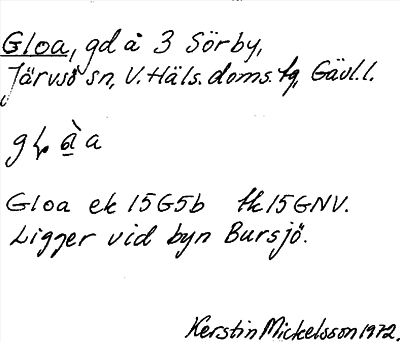 Gloa, gd å 3 Sörby,
Järvsö sn, V. Häls. doms. tg, Gävl.l.
Gloa ek 15G5b tk 15GNV.
Ligger vid byn Bursjö.
Kerstin Mickelsson 1972.